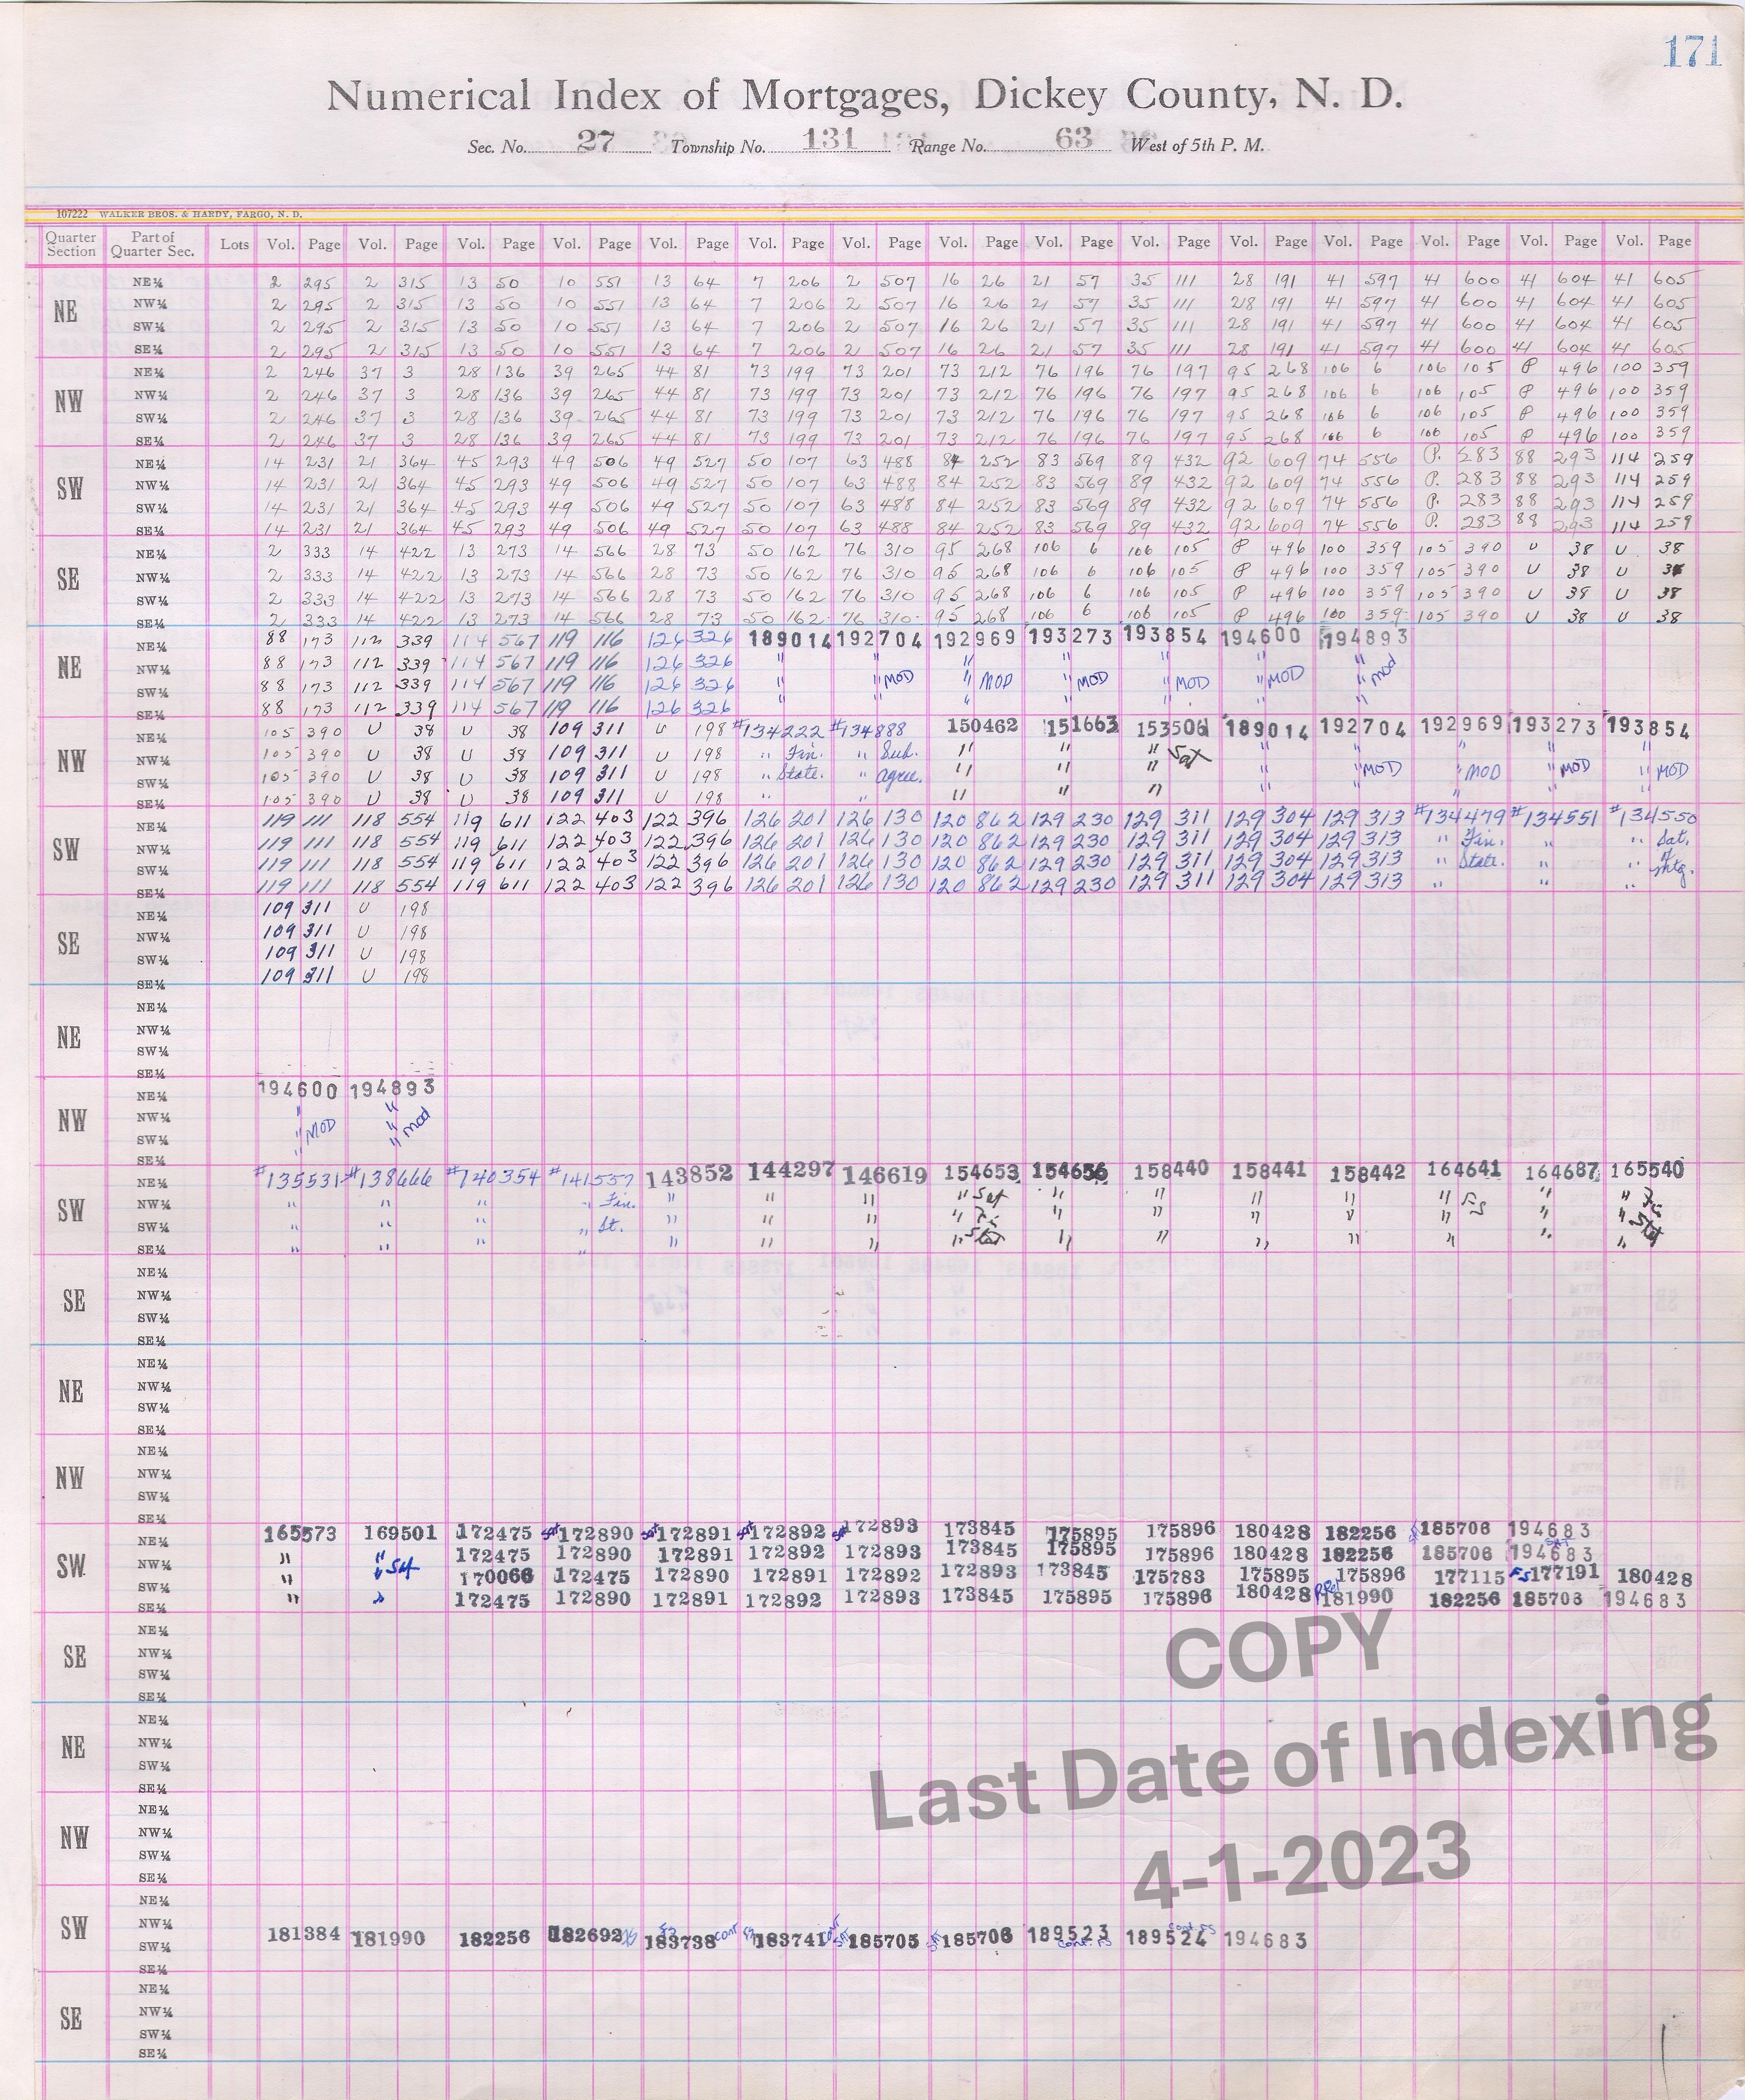 171
Numerical Index of Mortgages, Dickey County, N. D.
Sec. No. 27 Township No. 131 Range No. 63 West of 5th P. M.
107222 WALKER BROS. & HARDY, FARGO, N. D.
Quarter Section Part of Quarter Sec. Lots Vol. Page Vol. Page Vol. Page Vol. Page Vol. Page Vol. Page Vol. Page Vol. Page Vol. Page Vol. Page Vol. Page Vol. Page Vol. Page Vol. Page Vol. Page
NE
NE¼ 2 295 2 315 13 50 10 551 13 64 7 206 2 507 16 26 21 57 35 111 28 191 41 597 41 600 41 604 41 605
NW¼ 2 295 2 315 13 50 10 551 13 64 7 206 2 507 16 26 21 57 35 111 28 191 41 597 41 600 41 604 41 605
SW¼ 2 295 2 315 13 50 10 551 13 64 7 206 2 507 16 26 21 57 35 111 28 191 41 597 41 600 41 604 41 605
SE¼ 2 295 2 315 13 50 10 551 13 64 7 206 2 507 16 26 21 57 35 111 28 191 41 597 41 600 41 604 41 605
NW
NE¼ 2 246 37 3 28 136 39 265 44 81 73 199 73 201 73 212 76 196 76 197 95 268 106 6 106 105 P 496 100 359
NW¼ 2 246 37 3 28 136 39 265 44 81 73 199 73 201 73 212 76 196 76 197 95 268 106 6 106 105 P 496 100 359
SW¼ 2 246 37 3 28 136 39 265 44 81 73 199 73 201 73 212 76 196 76 197 95 268 106 6 106 105 P 496 100 359
SE¼ 2 246 37 3 28 136 39 265 44 81 73 199 73 201 73 212 76 196 76 197 95 268 106 6 106 105 P 496 100 359
SW
NE¼ 14 231 21 364 45 293 49 506 49 527 50 107 63 488 84 252 83 569 89 432 92 609 74 556 P. 283 88 293 114 259
NW¼ 14 231 21 364 45 293 49 506 49 527 50 107 63 488 84 252 83 569 89 432 92 609 74 556 P. 283 88 293 114 259
SW¼ 14 231 21 364 45 293 49 506 49 527 50 107 63 488 84 252 83 569 89 432 92 609 74 556 P. 283 88 293 114 259
SE¼ 14 231 21 364 45 293 49 506 49 527 50 107 63 488 84 252 83 569 89 432 92 609 74 556 P. 283 88 293 114 259
SE
NE¼ 2 333 14 422 13 273 14 566 28 73 50 162 76 310 95 268 106 6 106 105 P 496 100 359 105 390 U 38 U 38
NW¼ 2 333 14 422 13 273 14 566 28 73 50 162 76 310 95 268 106 6 106 105 P 496 100 359 105 390 U 38 U 38
SW¼ 2 333 14 422 13 273 14 566 28 73 50 162 76 310 95 268 106 6 106 105 P 496 100 359 105 390 U 38 U 38
SE¼ 2 333 14 422 13 273 14 566 28 73 50 162 76 310 95 268 106 6 106 105 P 496 100 359 105 390 U 38 U 38
NE
NE¼ 88 173 112 339 114 567 119 116 126 326 189014 192704 192969 193273 193854 194600 194893
NW¼ 88 173 112 339 114 567 119 116 126 326 " " " " " " "
SW¼ 88 173 112 339 114 567 119 116 126 326 " " MOD " MOD " MOD " MOD " MOD " mod
SE¼ 88 173 112 339 114 567 119 116 126 326 " " " " " " "
NW
NE¼ 105 390 U 38 U 38 109 311 U 198 #134222 #134888 150462 151663 153501 189014 192704 192969 193273 193854
NW¼ 105 390 U 38 U 38 109 311 U 198 " Fin. " Sub. " " " Sat " " " " "
SW¼ 105 390 U 38 U 38 109 311 U 198 " State. " agree. " " " " " MOD " MOD " MOD " MOD
SE¼ 105 390 U 38 U 38 109 311 U 198 " " " " " " " " " "
SW
NE¼ 119 111 118 554 119 611 122 403 122 396 126 201 126 130 120 862 129 230 129 311 129 304 129 313 #134479 #134551 #134550
NW¼ 119 111 118 554 119 611 122 403 122 396 126 201 126 130 120 862 129 230 129 311 129 304 129 313 " Fin. " " Sat.
SW¼ 119 111 118 554 119 611 122 403 122 396 126 201 126 130 120 862 129 230 129 311 129 304 129 313 " State. " " of
SE¼ 119 111 118 554 119 611 122 403 122 396 126 201 126 130 120 862 129 230 129 311 129 304 129 313 " " " Mtg.
SE
NE¼ 109 311 U 198
NW¼ 109 311 U 198
SW¼ 109 311 U 198
SE¼ 109 311 U 198
NE
NE¼
NW¼
SW¼
SE¼
NW
NE¼ 194600 194893
NW¼ " "
SW¼ " MOD " mod
SE¼ " "
SW
NE¼ #135531 #138666 #140354 #141557 143852 144297 146619 154653 154656 158440 158441 158442 164641 164687 165540
NW¼ " " " " Fin. " " " " Sat " " " " " FS " "
SW¼ " " " " St. " " " " " " " " " " "
SE¼ " " " " " " " " " " " " " " "
SE
NE¼
NW¼
SW¼
SE¼
NE
NE¼
NW¼
SW¼
SE¼
NW
NE¼
NW¼
SW¼
SE¼
SW
NE¼ 165573 169501 172475 Sat 172890 Sat 172891 Sat 172892 Sat 172893 173845 175895 175896 180428 182256 185706 194683
NW¼ " " Sat 172475 172890 172891 172892 172893 173845 175895 175896 180428 182256 185706 194683
SW¼ " " 170066 172475 172890 172891 172892 172893 173845 175783 175895 175896 177115 FS 177191 180428
SE¼ " " 172475 172890 172891 172892 172893 173845 175895 175896 180428 P.Rel 181990 182256 185703 194683
SE
NE¼
NW¼
SW¼
SE¼
NE
NE¼
NW¼
SW¼
SE¼
NW
NE¼
NW¼
SW¼
SE¼
SW
NE¼
NW¼
SW¼ 181384 181990 182256 182692 FS 183738 cont FS 183741 cont Sat 185705 Sat 185706 189523 Cont. FS 189524 Cont FS 194683
SE¼
SE
NE¼
NW¼
SW¼
SE¼
COPY
Last Date of Indexing
4-1-2023